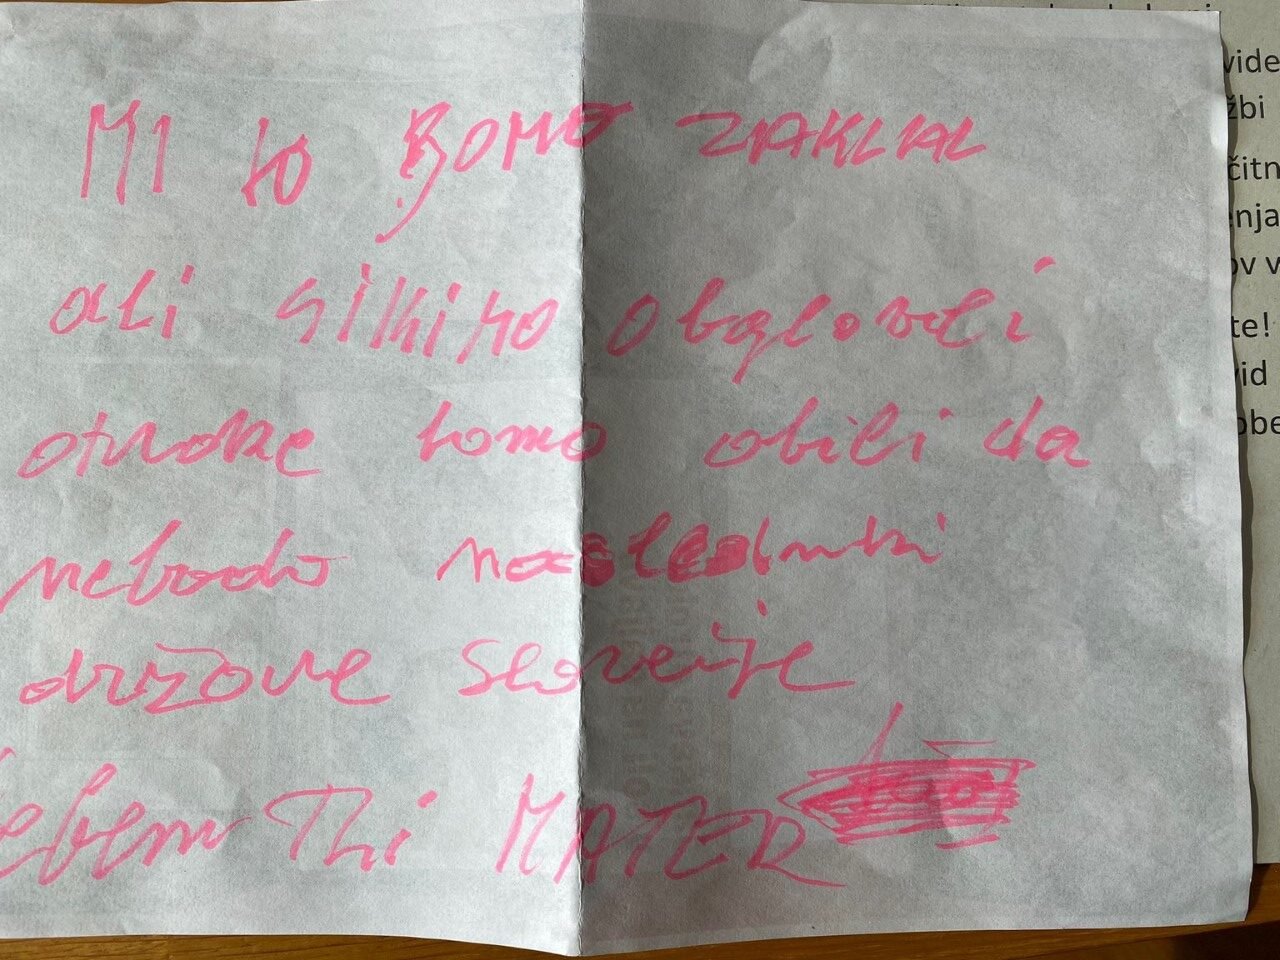 MI to BOMO ZAKLAL
ali sikiro obglovili
otroke bomo obili da
nebodo nasledniki
države Slovenije
Jebem Thi MATER
vide
žbi
čitn
enja
ov v
te!
vid
obbe